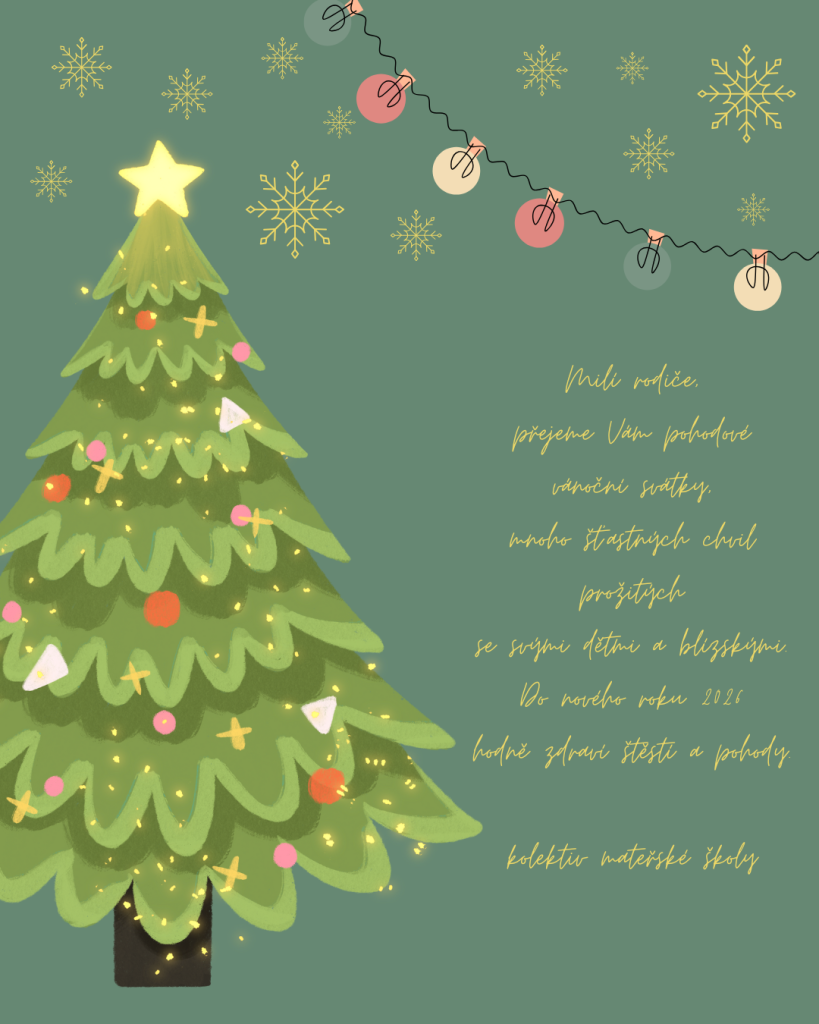 Milí rodiče,
přejeme Vám pohodové
vánoční svátky,
mnoho šťastných chvil
prožitých
se svými dětmi a blízskými.
Do nového roku 2026
hodně zdraví štěstí a pohody.
kolektiv mateřské školy